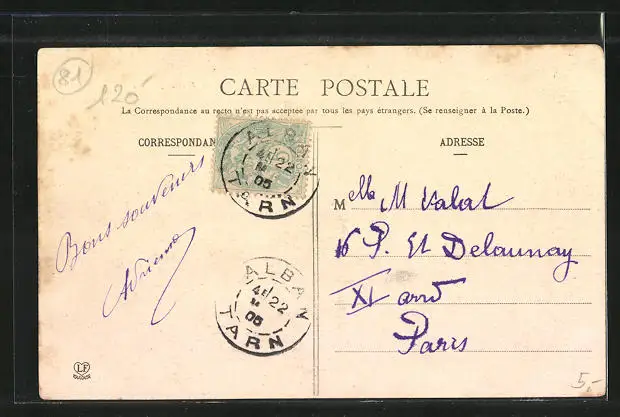 81
120
CARTE POSTALE
La Correspondance au recto n'est pas acceptée par tous les pays étrangers. (Se renseigner à la Poste.)
CORRESPONDAN
ADRESSE
ALBAN
4E/22
M
05
TARN
Bons souvenirs
Adrienne
Mlle M Valat
16 P. Et Delaunay
XI arrd
Paris
ALBAN
4E/22
M
05
TARN
LF
5,-